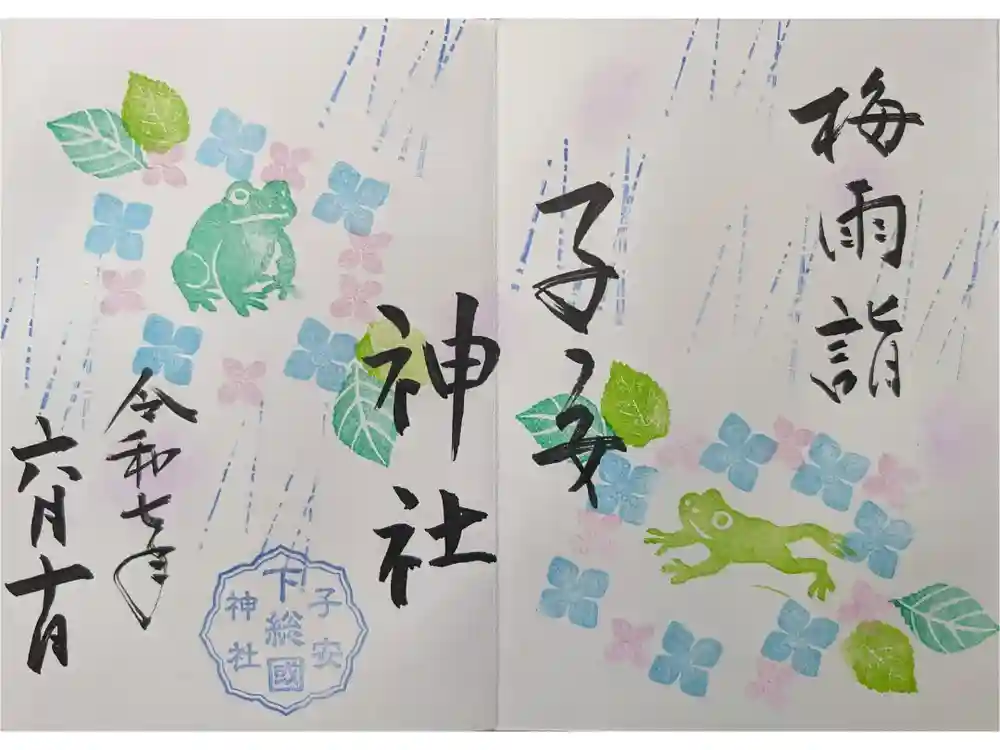 梅雨詣
子安
神社
令和七年
六月十日
下総國
子安
神社